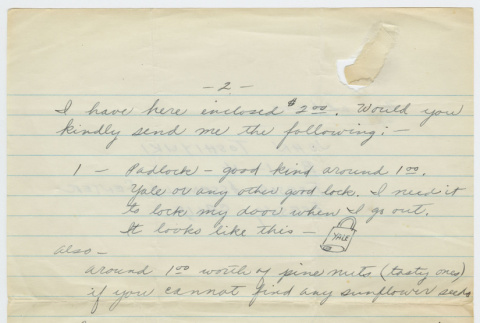 - 2. -
I have here inclosed $2.00. Would you
kindly send me the following: -
1 - Padlock - good kind around 1.00.
Yale or any other good lock. I need it
to lock my door when I go out.
It looks like this - YALE
also -
around 1.00 worth of pine nuts (tasty ones)
if you cannot find any sunflower seeds